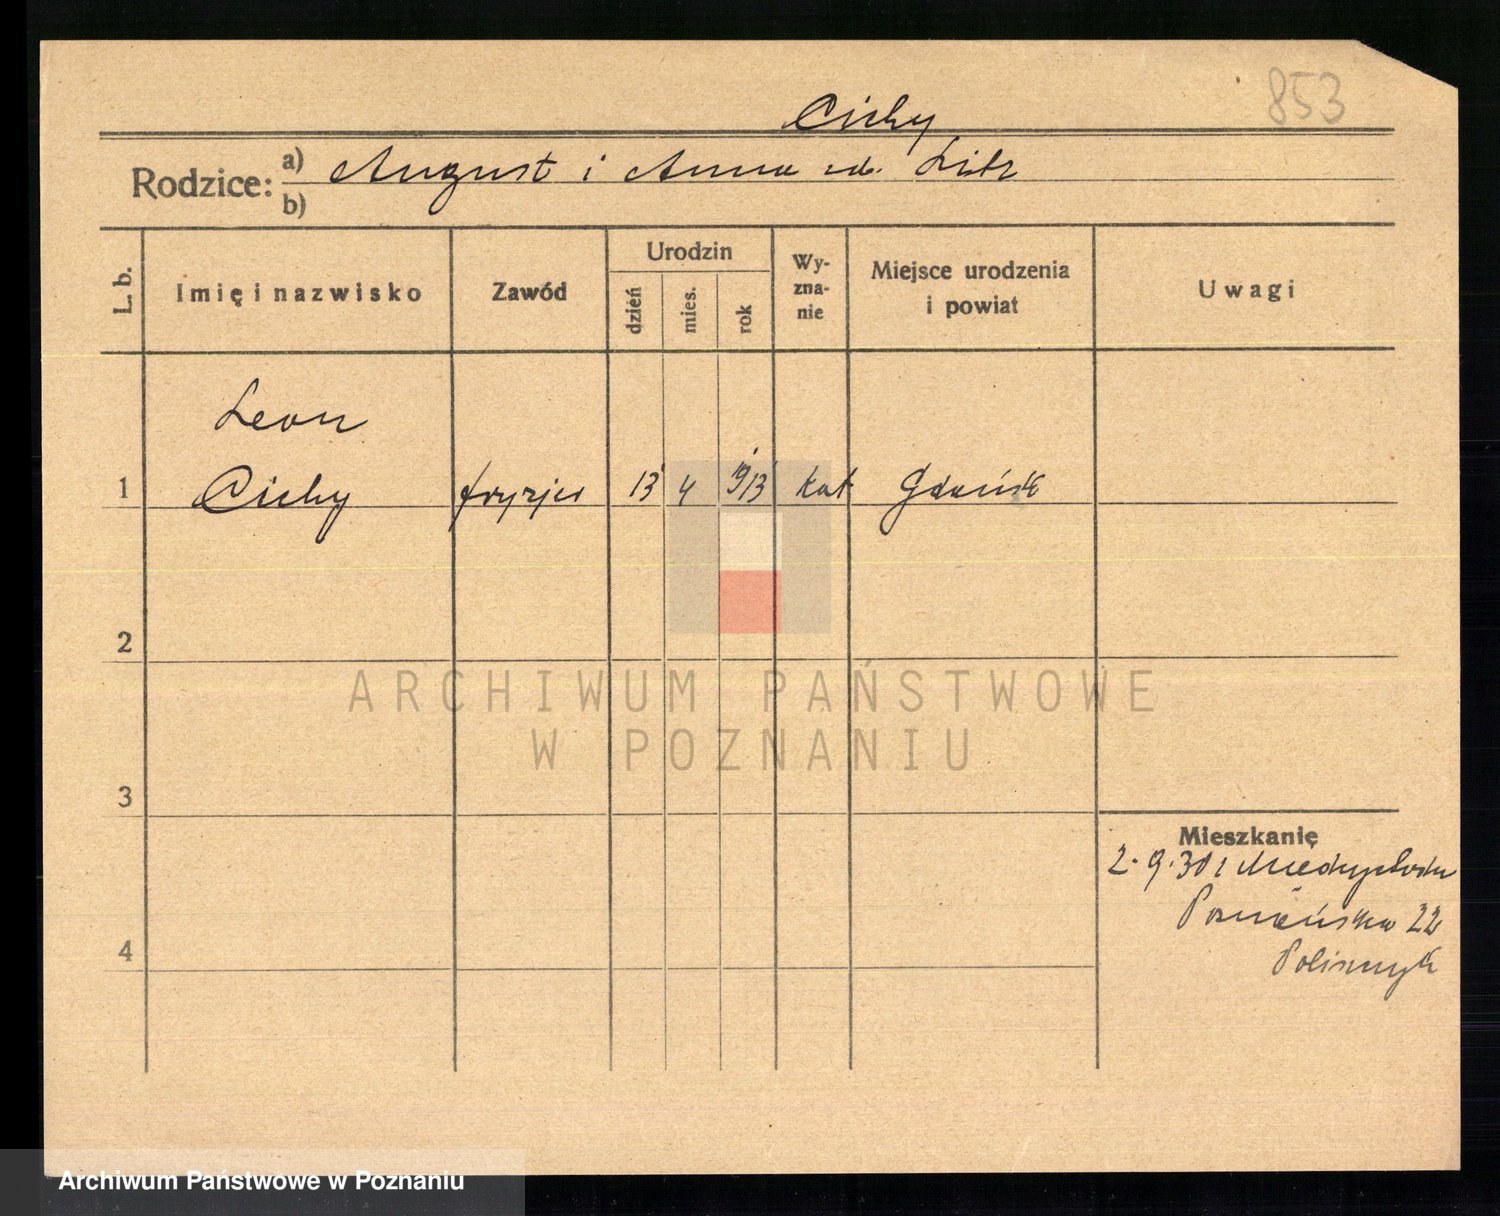 853
Cichy
Rodzice: a) August i Anna zd.
b)
L. b. Imię i nazwisko Zawód Urodzin dzień mies. rok Wy-zna-nie Miejsce urodzenia i powiat Uwagi
Leon
1 Cichy fryzjer 13 4 1913 kat Gdańsk
2
ARCHIWUM PAŃSTWOWE
W POZNANIU
3
Mieszkanię
2.9.30 Międzychodu
4 Poznańska 22
Archiwum Państwowe w Poznaniu